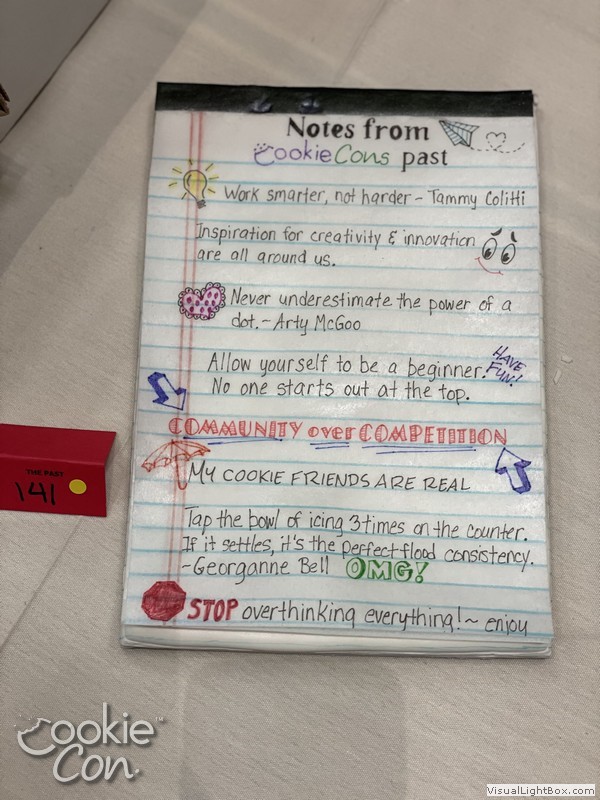 Notes from
CookieCons past
Work smarter, not harder - Tammy Colitti
Inspiration for creativity & innovation
are all around us.
Never underestimate the power of a
dot. - Arty McGoo
Allow yourself to be a beginner.
No one starts out at the top.
HAVE
FUN!
COMMUNITY over COMPETITION
MY COOKIE FRIENDS ARE REAL
Tap the bowl of icing 3 times on the counter.
If it settles, it's the perfect flood consistency.
~Georganne Bell OMG!
STOP overthinking everything! ~ enjoy
THE PAST
141
Cookie
Con
VisualLightBox.com